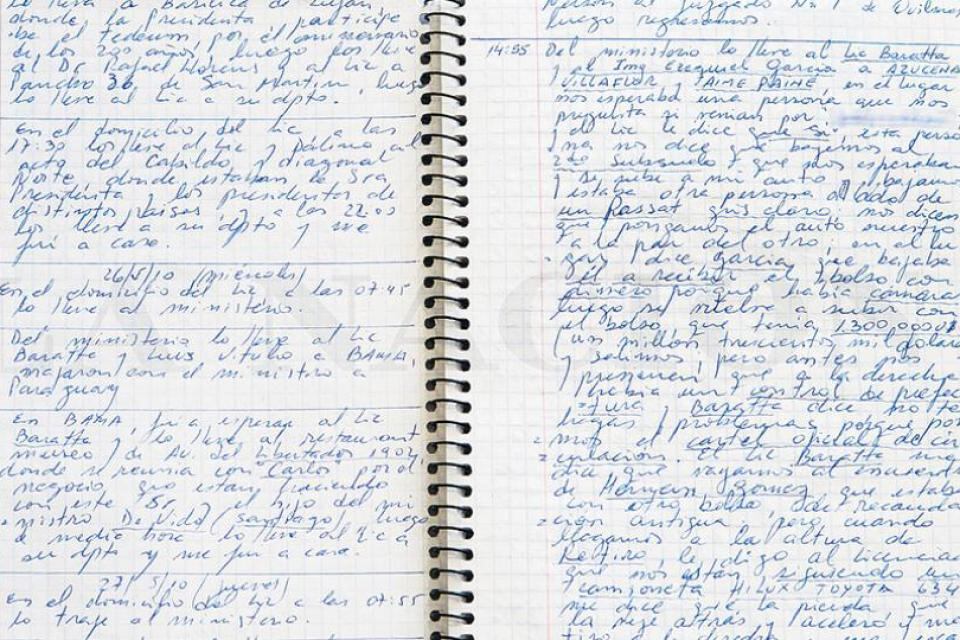 lo llevo a Basílica de Luján
donde la Presidenta, participe
de el tedeum por el aniversario
de los 200 años, luego los llevé
al Dr. Rafael y al Lic a
Pancho 36, de San Martín, luego
lo llevé al Lic a su dpto.
En el domicilio del Lic, a las
17:30 los llevé al Lic y al
acto del Cabildo, y diagonal
Norte donde estaban la Sra
Presidenta y los presidentes de
distintos países, y a las 22:00
los llevé a su dpto y me
fui a casa.
26/5/10 (miércoles)
En el domicilio del Lic a las 07:45
lo llevé al ministerio.
Del ministerio lo llevé al Lic
Baratta y Luis Vitullo a BAMA,
viajaron con el ministro a
Paraguay
En BAMA, fui a esperar al Lic
Baratta y lo llevé al restaurant
museo, de Av. del Libertador 1902
donde se reunía con "Carlos" por el
negocio que están haciendo
con este Sr y el hijo del mi
nistro De Vido (Santiago) luego
a media hora lo llevé al Lic a
su dpto y me fui a casa.
27/5/10 (jueves)
En el domicilio del Lic a las 07:55
lo traje al ministerio.
al juzgado Nº 1 de Quilmes
luego regresamos.
14:55 Del ministerio lo llevé al Lic Baratta
y al Ing Ezequiel García a AZUCENA
VILLAFLOR Y JAIME PAINE, en el lugar
nos esperaba una persona que nos
pregunta si venian por
y el Lic le dice que si, esta perso
na nos dice que bajemos al
2do subsuelo y que nos esperaban
y se sube a mi auto y bajamos
estaba otra persona al lado de
un Passat gris claro, nos dicen
que pongamos el auto nuestro
a la par del otro, en el lu
gar y dice García, que bajaba
él a recibir el bolso con
dinero porque había cámaras
luego se vuelve a subir con
el bolso, que tenía 1.300.000 U$
(un millón trescientos mil dólares
y salimos pero antes nos
previenen que a la derecha
había un control de prefec
tura y Baratta dice no te
hagas problemas, porque pone
mos el cartel oficial de cir
culación. El Lic Baratta me
dice que vayamos al encuentro
de Hernan Gomez, que estaba
con otro bolso, de recauda
cion antigua, pero cuando
llegamos a la altura de
Retiro, le digo al licenciado
que nos están siguiendo una
camioneta HILUX TOYOTA 634
me dice que, la pierda, que
la deje atras, y aceleró y me
tiro a la derecha